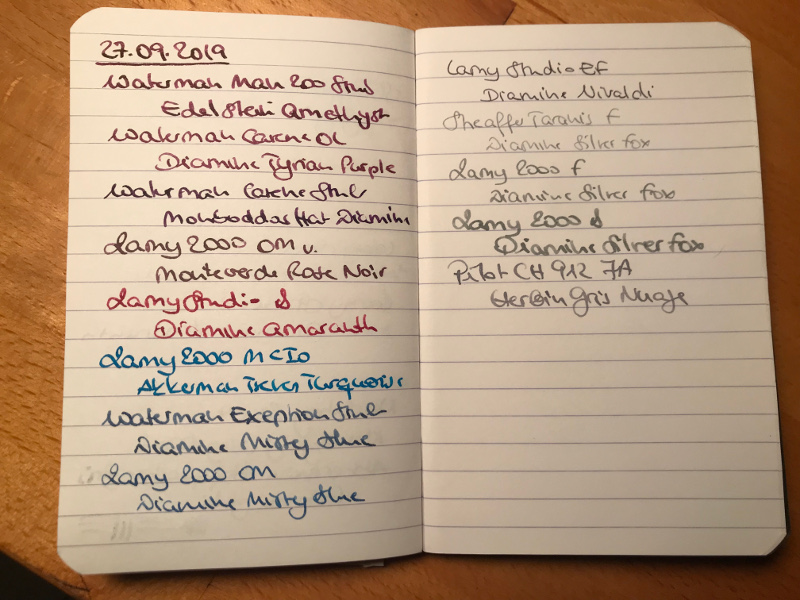 27.09.2019
Waterman Man 200 Stub
Edelstein Amethyst
Waterman Carene OL
Diamine Tyrian Purple
Waterman Carene Stub
Monboddos Hat Diamine
Lamy 2000 OM v.
Monteverde Rose Noir
Lamy Studio S
Diamine Amaranth
Lamy 2000 M CIo
Akkerman Turquoise
Waterman Exeption Stub
Diamine Misty Blue
Lamy 2000 OM
Diamine Misty Blue
Lamy Studio EF
Diamine Vivaldi
Sheaffer Taranis F
Diamine Silver Fox
Lamy 2000 F
Diamine Silver Fox
Lamy 2000 S
Diamine Silver Fox
Pilot CH 912 FA
Herbin Gris Nuage